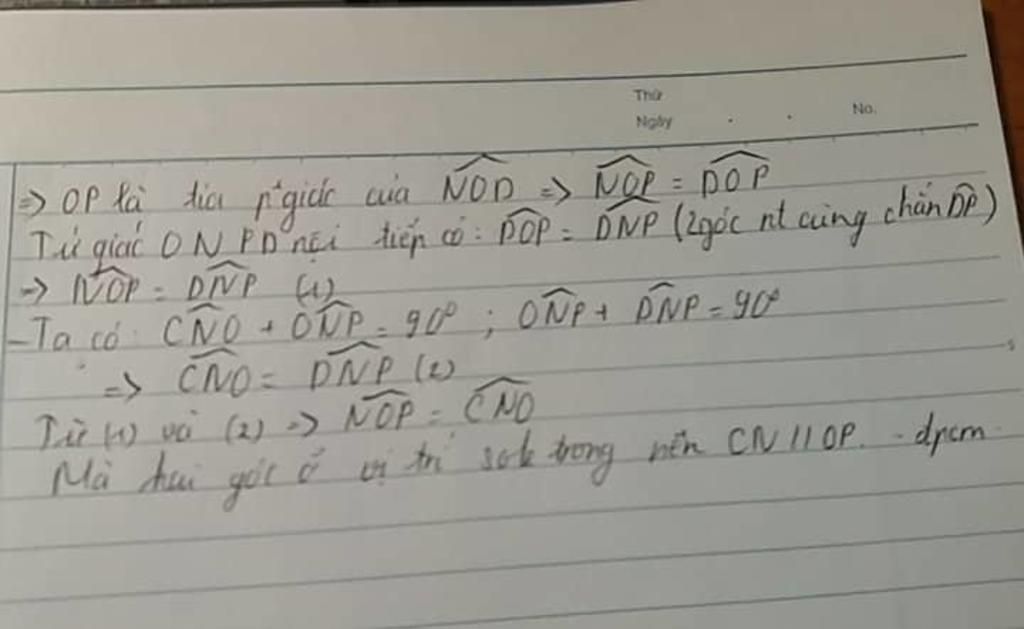 Thứ
Ngày . . No.
=> OP là tia p²giác của \widehat{NOD} => \widehat{NOP} = \widehat{DOP}
Tứ giác ONPD nội tiếp có: \widehat{DOP} = \widehat{DNP} (2góc nt cùng chắn \widehat{DP})
-> \widehat{NOP} = \widehat{DNP} (1)
-Ta có: \widehat{CNO} + \widehat{ONP} = 90° ; \widehat{ONP} + \widehat{DNP} = 90°
=> \widehat{CNO} = \widehat{DNP} (2)
Từ (1) và (2) => \widehat{NOP} = \widehat{CNO}
Mà hai góc ở vị trí sole trong nên CN // OP. - dpcm